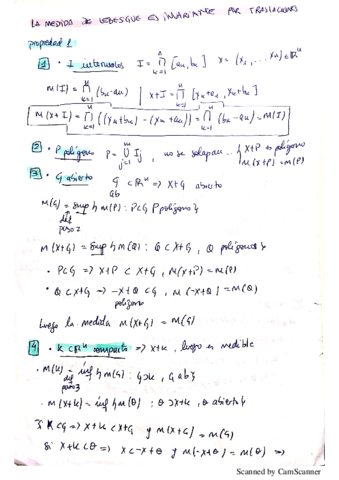 LA MEDIDA DE LEBESGUE ES INVARIANTE POR TRASLACIONES
propiedad 1
1 • I intervalos I = ∏_{k=1}^{n} [a_k, b_k] x = (x_1, ... x_n) ∈ ℝ^n
m(I) = ∏_{k=1}^{n} (b_k - a_k) | x+I = ∏_{k=1}^{n} [x_k + a_k, x_k + b_k]
m(x+I) = ∏_{k=1}^{n} ((x_k + b_k) - (x_k + a_k)) = ∏_{k=1}^{n} (b_k - a_k) = m(I)
2 • P polígono P = ⋃_{j=1}^{N} I_j, no se solapan... { x+P es polígono
m(x+P) = m(P)
3 • G abierto G ⊂ ℝ^n ab => x+G abierto
m(G) = sup { m(P) : P ⊂ G, P polígono }
def paso 2
m(x+G) = sup { m(Q) : Q ⊂ x+G, Q polígono }
• P ⊂ G => x+P ⊂ x+G, m(x+P) = m(P)
• Q ⊂ x+G => -x+Q ⊂ G, m(-x+Q) = m(Q)
polígono
Luego la medida m(x+G) = m(G)
4 • K ⊂ ℝ^n compacto => x+K, luego es medible
• m(K) = inf { m(G) : G ⊃ K, G ab }
def paso 3
• m(x+K) = inf { m(θ) : θ ⊃ x+K, θ abierto }
Si K ⊂ G => x+K ⊂ x+G y m(x+G) = m(G)
Si x+K ⊂ θ => K ⊂ -x+θ y m(-x+θ) = m(θ) =>
Scanned by CamScanner